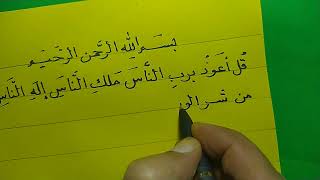 بسم الله الرحمن الرحيم
قُل أعوذ برب النَّاس مَلكِ النَّاس إلهِ النَّاسِ
من شر الو